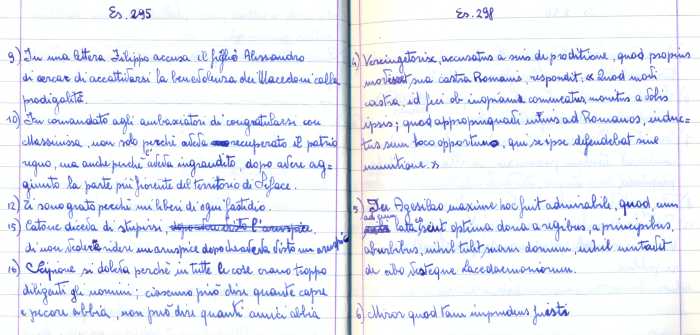 Es. 295
9) In una lettera Filippo accusa il figlio Alessandro
di cercar di accattivarsi la benevolenza dei Macedoni colla
prodigalità.
10) Fu comandato agli ambasciatori di congratularsi con
Massinissa, non solo perché aveva recuperato il patrio
regno, ma anche perché l'aveva ingrandito, dopo avere ag-
giunto la parte più fiorente del territorio di Siface.
12) Ti sono grato perché mi liberi di ogni fastidio.
15) Catone diceva di stupirsi,
di non vedere ridere un aruspice dopo che aveva visto un aruspice
16) Scipione si doleva perché in tutte le cose erano troppo
diligenti gli uomini; ciascuno può dire quante capre
e pecore abbia, non può dire quanti amici abbia
Es. 298
4) Vercingetorix, accusatus a suis de proditione, quod propius
sua castra Romanis, respondit: « Quod movi
castra, id feci ob inopiam commeatus, monitus a vobis
ipsis; quod appropinquavi ad Romanos,
sum loco opportuno, qui se ipse defendebat sine
munitione. »
5) In Agesilao maxime hoc fuit admirabile, quod, cum
ad eum lata essent optima dona a regibus, a principibus,
nihil tulit, domum, nihil mutavit
de cibo Lacedaemoniorum.
6) Miror quod tam imprudens fuisti